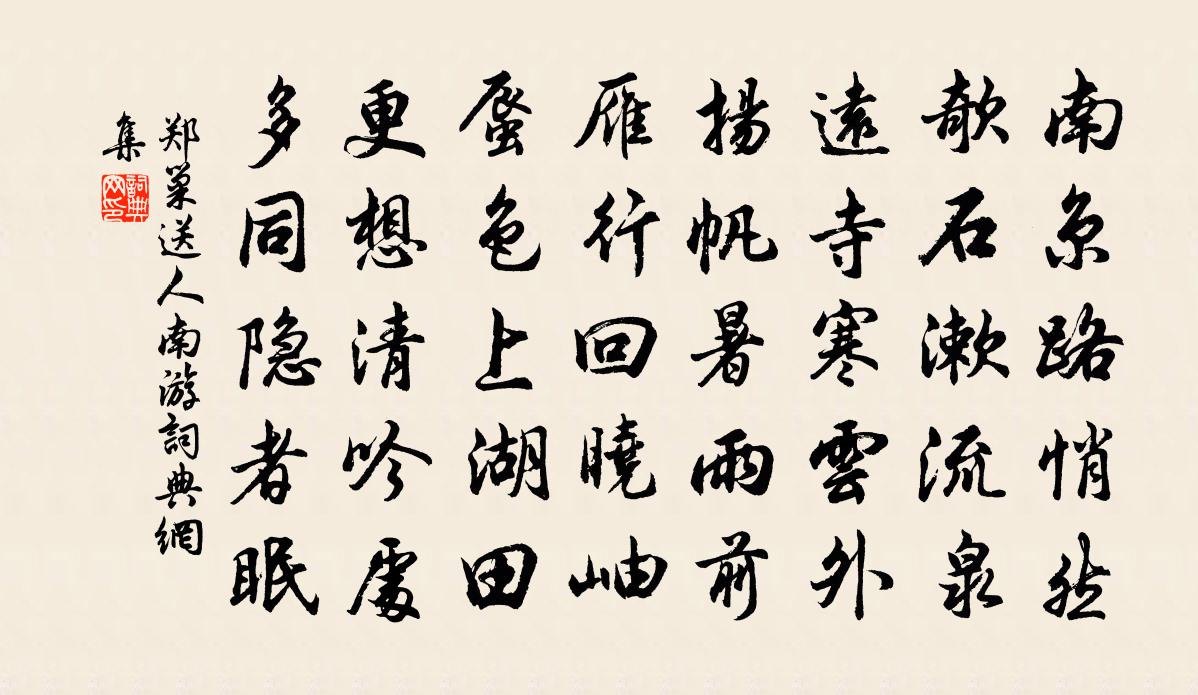 南京路悄然
欹石漱流泉
遠寺寒雲外
揚帆暑雨前
雁行回曉岫
蜃色上湖田
更想清吟處
多同隐者眠
郑巢送人南游詞典網
集
詞典網印